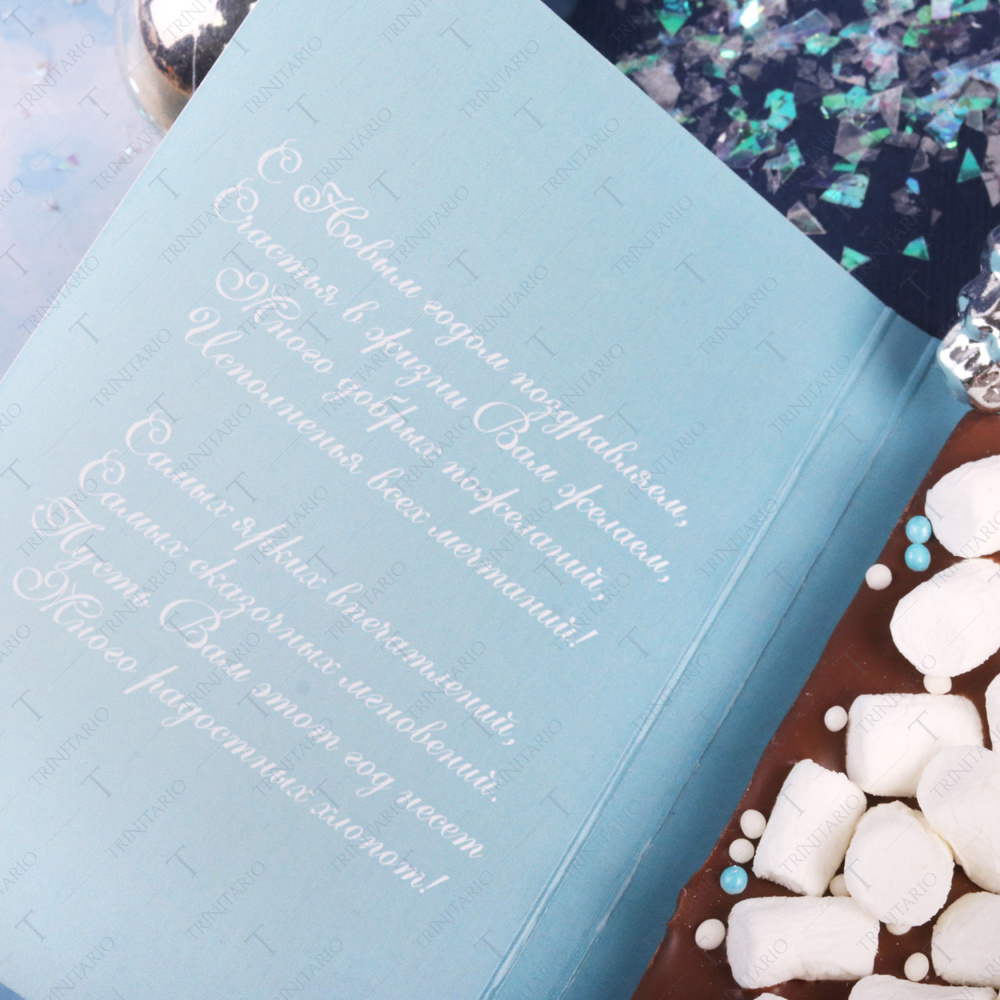 С Новым годом поздравляем,
Счастья в жизни Вам желаем,
Много добрых пожеланий,
Исполненья всех мечтаний!
Самых ярких впечатлений,
Самых сказочных мгновений.
Пусть Вам этот год несет
Много радостных хлопот!
T
TRINITARIO